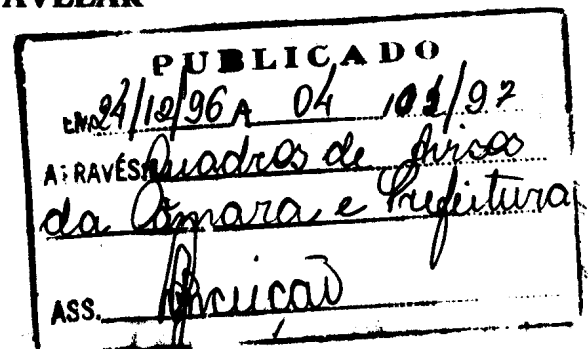 AVELAR
PUBLICADO
EM 24/12/96 A 04 /01/97
ATRAVÉS Quadros de Avisos
da Câmara e Prefeitura
ASS.